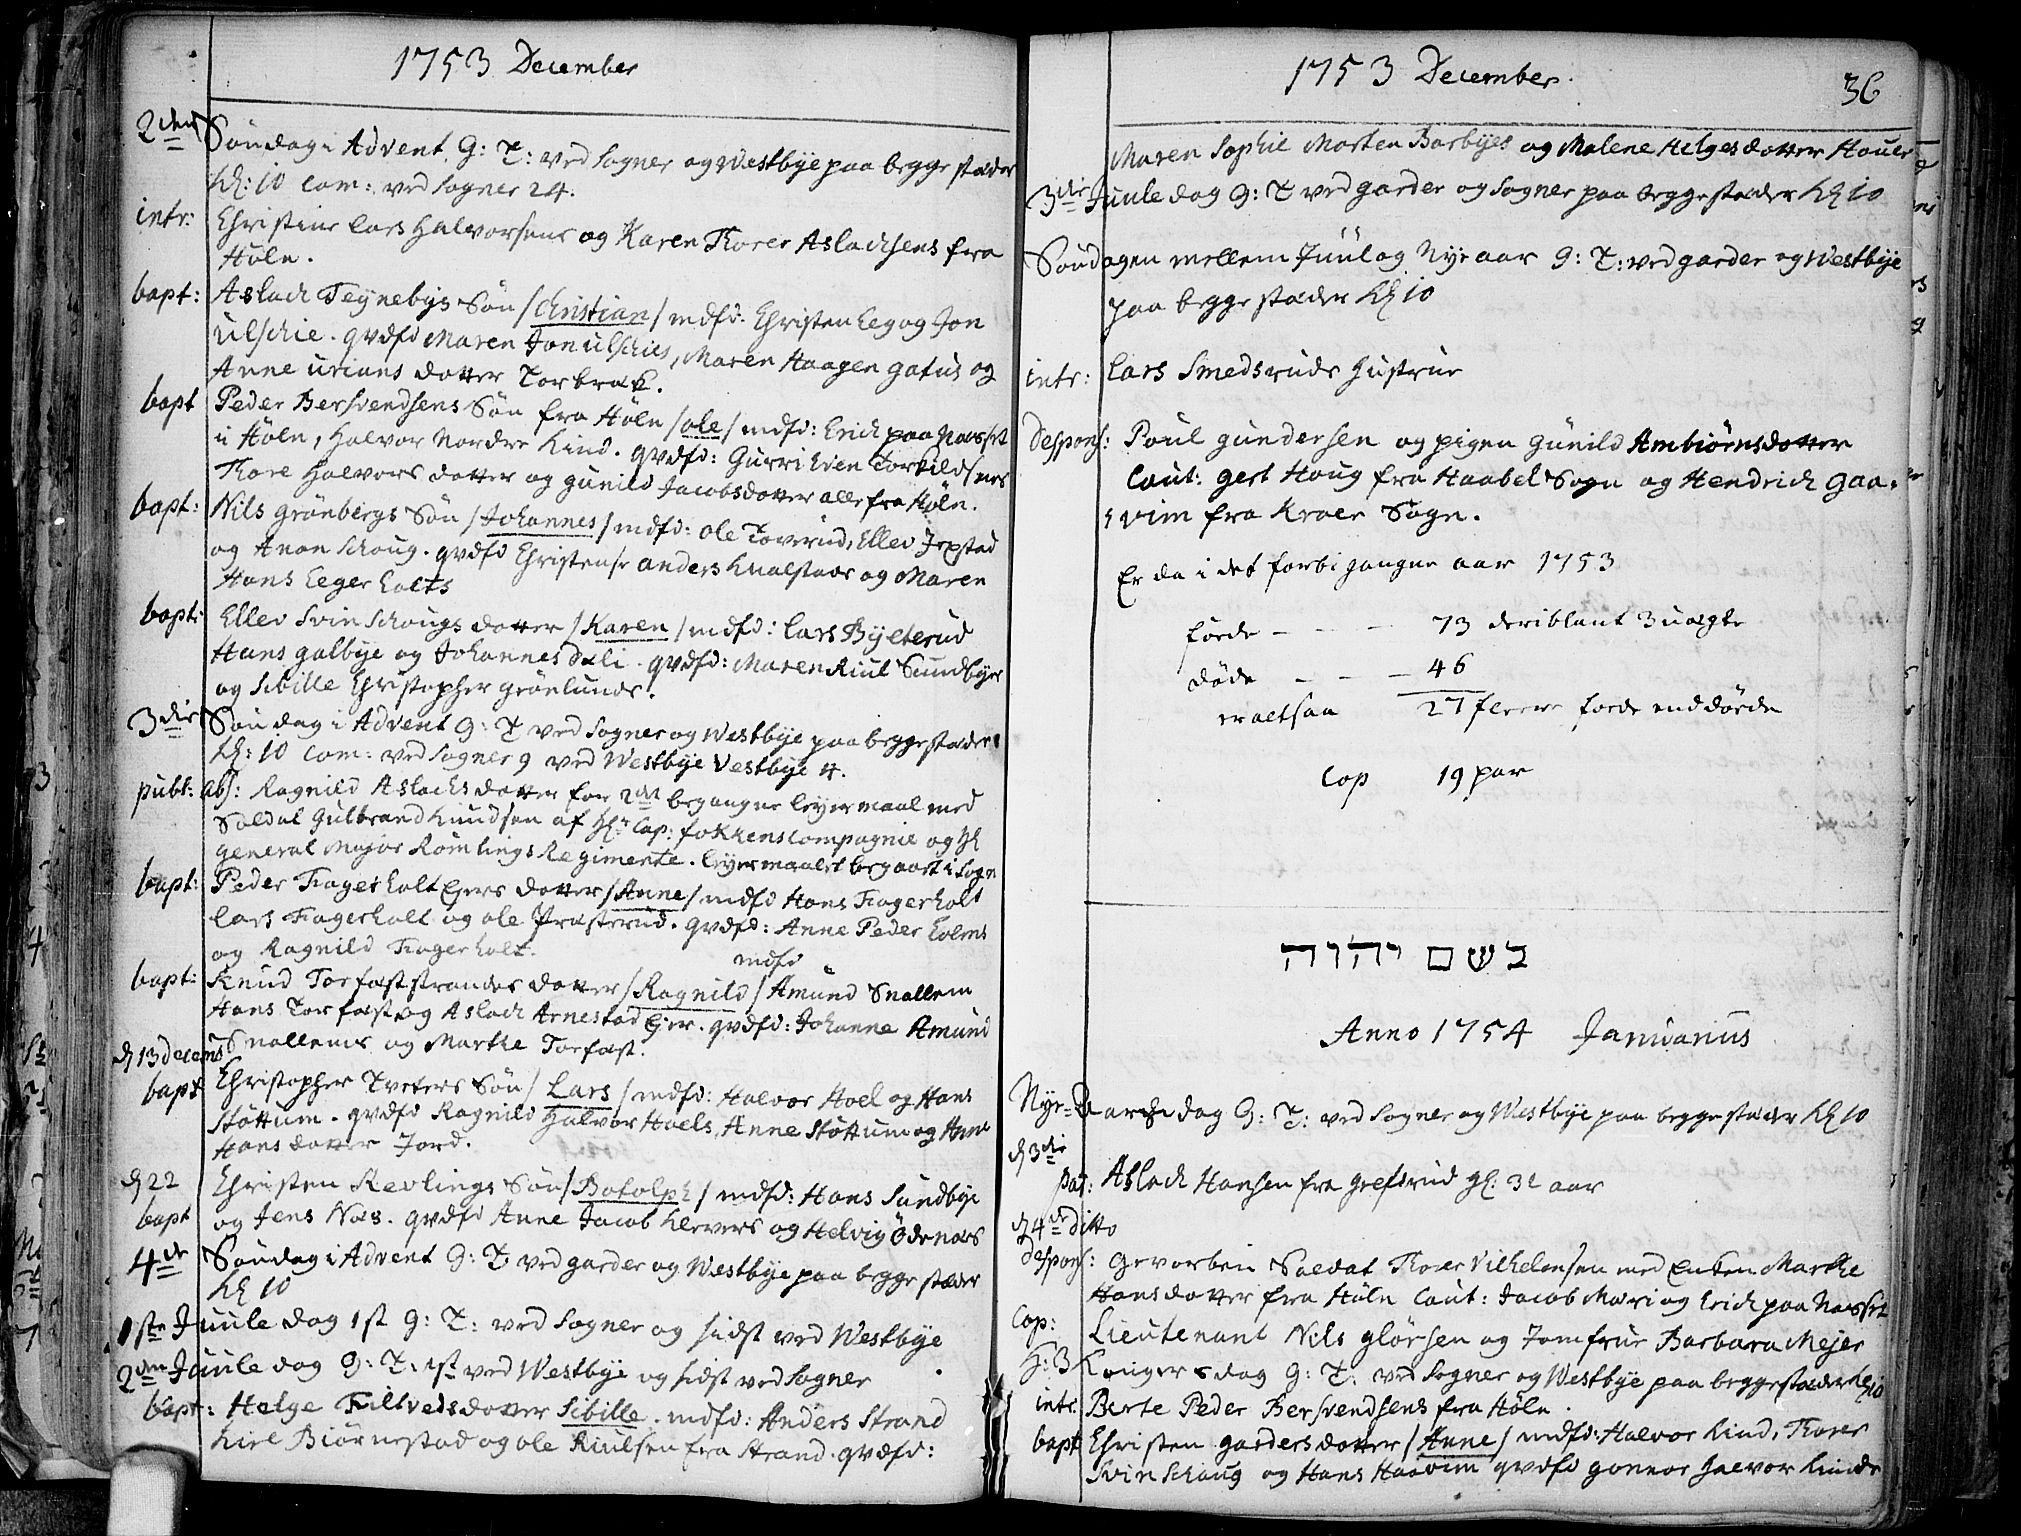 1753 December
2den Søndag i Advent. G: T: ved Sogner og Westbye paa begge stæder
Kl: 10 Com: ved Sogner 24.
intr: Christine Lars Halvorsens og Karen Thorer Aslachsens fra
Høln.
bapt: Aslach Teynebys Søn / Christian / mdfd. Christen Eeg og Jon
Ulschie. qvdfd Maren Jon Ulschies, Maren Haagen gatus og
Anne Urians dotter Torbræk.
bapt Peder Bersvendsens Søn fra Høln / ole / mdfd: Erich paa Næsset
i Höln, Halvor Nordre Kind. qvdfd: Gurri Even Torkildsens
Thore Halvors dotter og gunild Jacobsdotter alle fra Høln.
bapt: Nils Grønbergs Søn / Johannes / mdfd: ole Toverud, Ellev Jepstad
og Anon Schoug. qvdfd Christense anders Kualstads og Maren
Hans Eeger Eolts
bapt: Ellev Svin Schougs dotter / Karen / mdfd: Lars Byleterud
Hans galbye og Johannes Dæli. qvdfd: Maren Riul Sundbyes
og Sibille Christopher grönlunds.
3die Søndag i Advent G: T ved Sogner og Westbye paa begge stæder
Kl: 10 Com: ved Sogner 9 ved Westbye Vestbye 4.
publ: abs: Ragnild Aslachsdotter for 2det begangne leyermaal med
Soldat Gulbrand Knudsen af Hr Cap: Fokkens Compagnie og Hl
General Major Römlings Regimente. leyermaalet begaaet i Sogn
bapt: Peder Fagerholt Ejers dotter / Anne / mdfd Hans Fagerholt
Lars Fagerholt og ole Præsterud. qvdfd: Anne Peder Eolens
og Ragnild Fagerholt. mdfd
bapt: Knud Torfæststrandes dotter / Ragnild / Amund Snallem
Hans Torfæst og Aslach Arnestad Ejer. qvdfd: Johanne Amund
Snallems og Marthe Torfæst.
d 13 decemb
bapt Christopher Tveters Søn / Lars / mdfd: Halvor Hoel og Hans
Støttum. qvdfd Ragnild Halvor Hoels, Anne Støttum og Anne
Hans dotter Jord.
d 22 Christen Revlings Søn / Botolph / mdfd: Hans Sundbye
bapt og Jens Næs. qvdfd Anne Jacob Klevers og Helvig Ödenæs
4de Søndag i Advent G: T ved garder og Westbye paa begge stæder
Kl 10
1ste Juule dag 1st G: T: ved Sogner og sidst ved Westbye
2den Juule dag G: T: 1st ved Westbye og sidst ved Sogner
bapt: Helge Filtvedsdotter Sibille. mdfd: Anders Strand
Kirl Biørnestad og ole Riulsen fra Strand. qvdfd:
1753 December.
36
Maren Sophie Morten Barbyes og Malene Helgesdotter Houer
3die Juule dag G: T ved garder og Sogner paa begge stæder Kl 10
Søndagen mellem Juul og Nye aar G: T: ved garder og Westbye
paa begge stæder Kl 10
intr: Lars Smedsruds Hustrue
Despons: Poul gundersen og pigen gunild Ambiørnsdotter
Caut: gert Houg fra Haabel Sogn og Hendrich gaa-
svim fra Kroer Sogn.
Er da i det forbigangne aar 1753
fœde - - - 73 deriblant 3 uægte
døde - - - 46
er altsaa 27 fleere fœde end døde
Cop 19 par
בשם יהוה
Anno 1754 Januarius
Nye-Aars dag G: T: ved Sogner og Westbye paa begge stæder Kl 10
d 3die
Aslach Hansen fra Grefsrud gl: 32 aar
d 4de ditto
despons: Gevorben Soldat Thorer Vilhelmsen med Enken Marthe
Hansdotter fra Höln Caut: Jacob Mæri og Erich paa Næsset
Cop: Lieutenant Nils glørsen og Jomfrue Barbara Mejer
H: 3 Kongers dag G: T: ved Sogner og Westbye paa begge stæder Kl 10
intr. Berte Peder Bersvendsens fra Höln.
bapt Christen garders dotter / Anne / mdfd: Halvor Kind, Thorer
Svin Schoug og Hans Haavim qvdfd gonnor Halvor Kinds